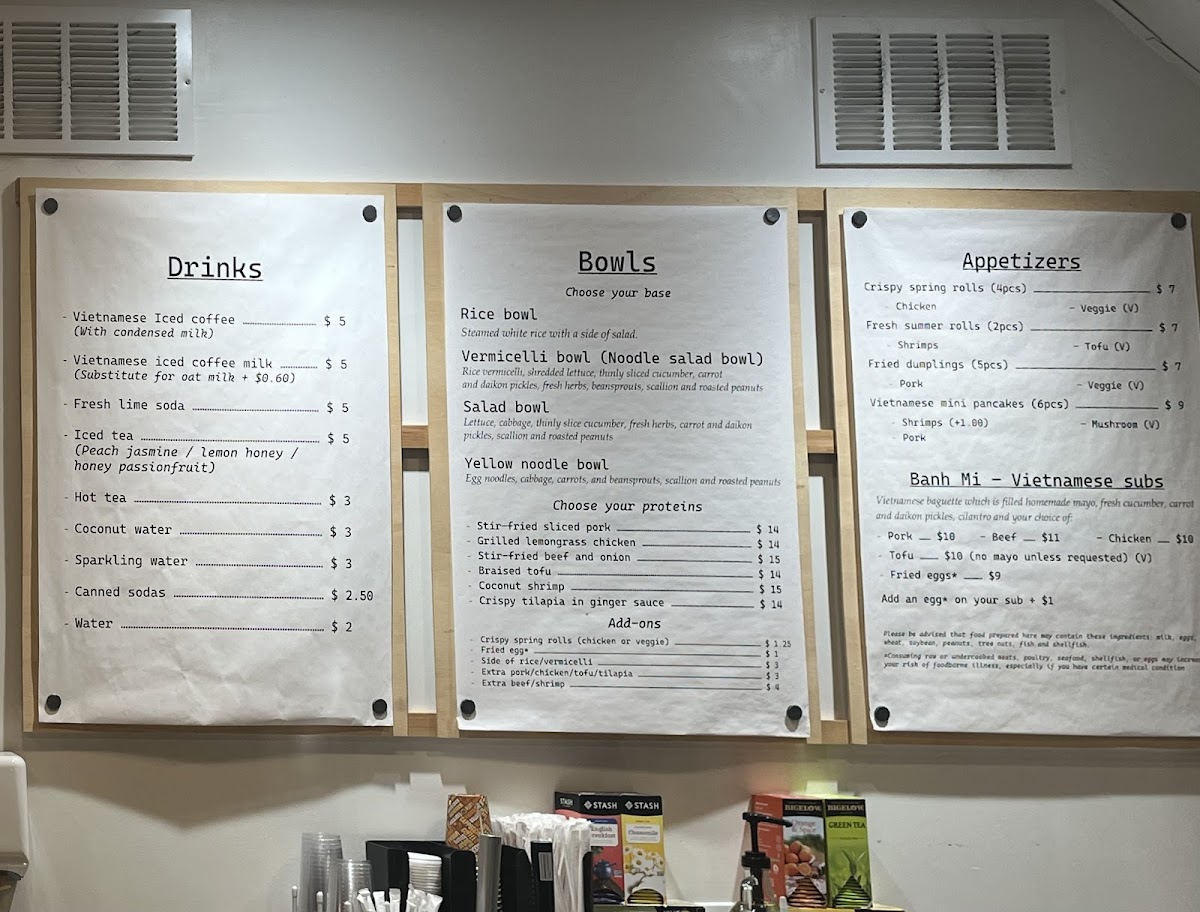 Drinks
- Vietnamese Iced coffee $ 5
(With condensed milk)
- Vietnamese iced coffee milk $ 5
(Substitute for oat milk + $0.60)
- Fresh lime soda $ 5
- Iced tea $ 5
(Peach jasmine / lemon honey /
honey passionfruit)
- Hot tea $ 3
- Coconut water $ 3
- Sparkling water $ 3
- Canned sodas $ 2.50
- Water $ 2
Bowls
Choose your base
Rice bowl
Steamed white rice with a side of salad.
Vermicelli bowl (Noodle salad bowl)
Rice vermicelli, shredded lettuce, thinly sliced cucumber, carrot
and daikon pickles, fresh herbs, beansprouts, scallion and roasted peanuts
Salad bowl
Lettuce, cabbage, thinly slice cucumber, fresh herbs, carrot and daikon
pickles, scallion and roasted peanuts
Yellow noodle bowl
Egg noodles, cabbage, carrots, and beansprouts, scallion and roasted peanuts
Choose your proteins
- Stir-fried sliced pork $ 14
- Grilled lemongrass chicken $ 14
- Stir-fried beef and onion $ 15
- Braised tofu $ 14
- Coconut shrimp $ 15
- Crispy tilapia in ginger sauce $ 14
Add-ons
- Crispy spring rolls (chicken or veggie) $ 1.25
- Fried egg* $ 1
- Side of rice/vermicelli $ 3
- Extra pork/chicken/tofu/tilapia $ 3
- Extra beef/shrimp $ 4
Appetizers
Crispy spring rolls (4pcs) $ 7
- Chicken - Veggie (V)
Fresh summer rolls (2pcs) $ 7
- Shrimps - Tofu (V)
Fried dumplings (5pcs) $ 7
- Pork - Veggie (V)
Vietnamese mini pancakes (6pcs) $ 9
- Shrimps (+1.00) - Mushroom (V)
- Pork
Banh Mi - Vietnamese subs
Vietnamese baguette which is filled homemade mayo, fresh cucumber, carrot
and daikon pickles, cilantro and your choice of:
- Pork $10 - Beef $11 - Chicken $10
- Tofu $10 (no mayo unless requested) (V)
- Fried eggs* $9
Add an egg* on your sub + $1
Please be advised that food prepared here may contain these ingredients: milk, eggs,
wheat, soybean, peanuts, tree nuts, fish and shellfish.
*Consuming raw or undercooked meats, poultry, seafood, shellfish, or eggs may increase
your risk of foodborne illness, especially if you have certain medical condition
STASH STASH STASH
English
Breakfast
Chamomile
BIGELOW BIGELOW
Orange
& Spice
GREEN TEA